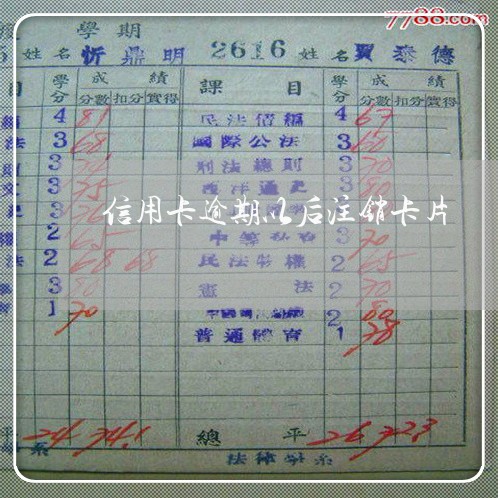 7788.com
學期
姓名 忻鼎明 2616 姓名 賈泰德
目 學分 成績 課目 學分 成績
分數 扣分 實得 分數 扣分 實得
4 81 民法債編 4 67
法 3 68 國際公法 3 60
3 刑法總則 3 70
3 75 西洋通史 3 80
信用卡逾期以后注销卡片
2 65 3 70
法 2 68 68 民法物權 2 65
3 80 憲法 2 70
1 70 2 80
普通體育 1 78
平 24 74.1 總平 26 72.3
系 法律學系